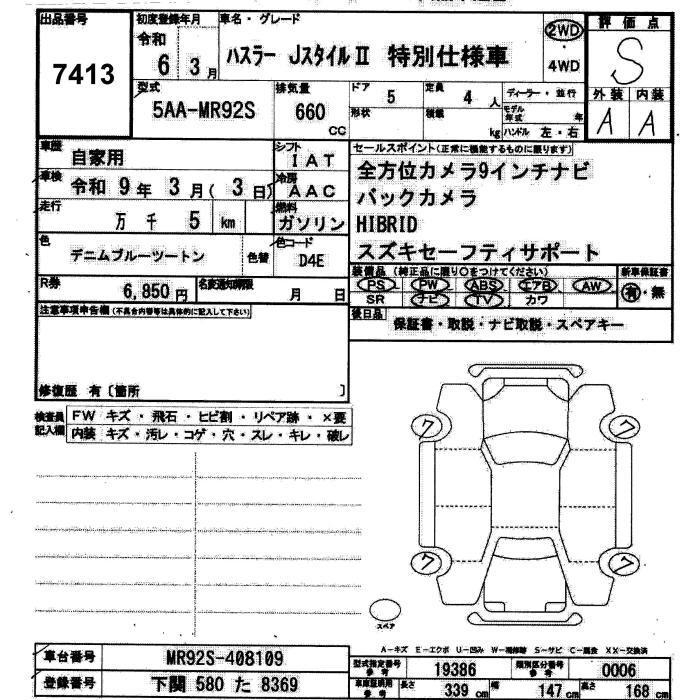 出品番号 7413
初度登録年月 令和 6 3 月
車名・グレード ハスラー JスタイルⅡ 特別仕様車
2WD ・ 4WD
評価点 S
外装 内装
A A
型式 5AA-MR92S
排気量 660 CC
ドア 5
定員 4 人
形状 積載 kg
ディーラー・並行
モデル年式 年
ハンドル 左・右
車歴 自家用
シフト IAT
車検 令和 9 年 3 月( 3 日)
冷房 AAC
走行 万 千 5 km
燃料 ガソリン
色 デニムブルーツートン 色替
色コード D4E
R券 6,850 円
名変通知期限 月 日
セールスポイント(正常に機能するものに限ります)
全方位カメラ9インチナビ
バックカメラ
HIBRID
スズキセーフティサポート
装備品 (純正品に限り○をつけてください)
PS PW ABS エアB AW
SR ナビ TV カワ
新車保証書
有・無
後日品 保証書・取説・ナビ取説・スペアキー
注意事項申告欄(不具合内容等は具体的に記入して下さい)
修復歴 有〔箇所 〕
検査員記入欄
FW キズ・飛石・ヒビ割・リペア跡・×要
内装 キズ・汚レ・コゲ・穴・スレ・キレ・破レ
7 7
7 7
スペア
A-キズ E-エクボ U-凹み W-補修跡 S-サビ C-腐食 XX-交換済
車台番号 MR92S-408109
登録番号 下関 580 た 8369
型式指定番号 参考 19386
類別区分番号 参考 0006
車庫証明用 参考 長さ 339 cm 幅 147 cm 高さ 168 cm